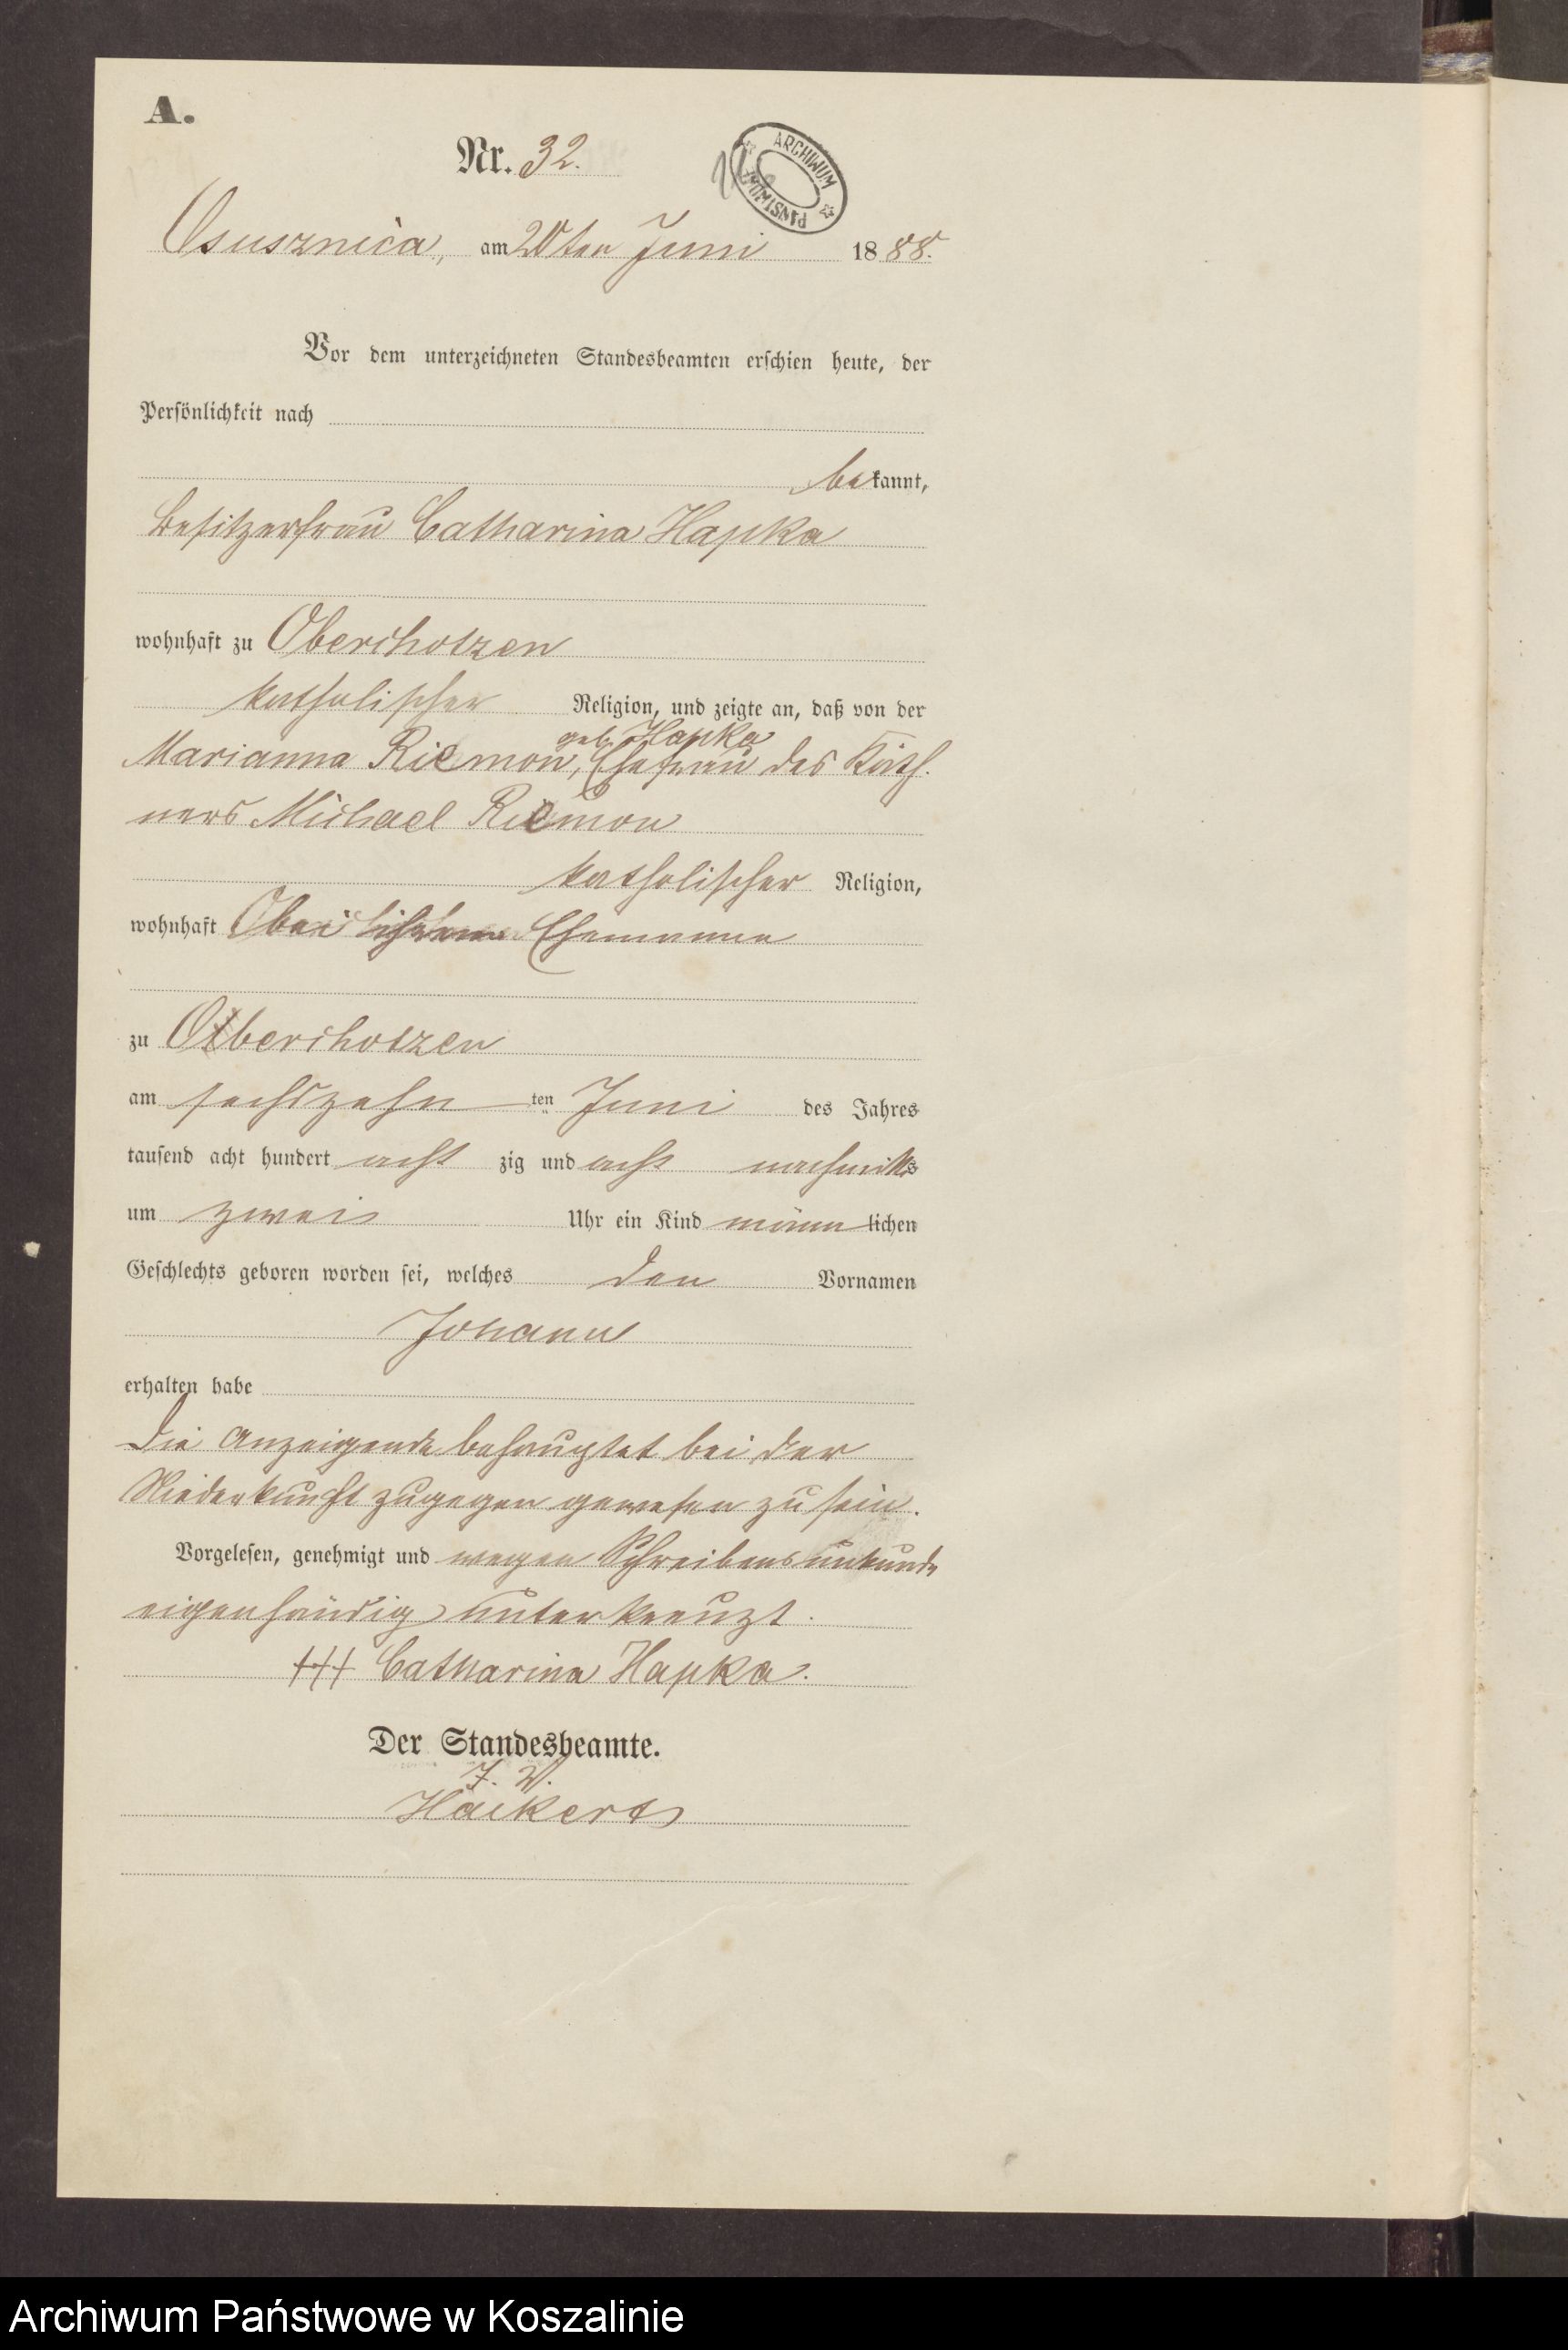 A.
Nr. 32.
ARCHIWUM PAŃSTWOWE
Osusznica, am 20ten Juni 1888.
Vor dem unterzeichneten Standesbeamten erschien heute, der
Persönlichkeit nach
bekannt,
Besitzerfrau Catharina Hapka
wohnhaft zu Oberchotzen
katholischer Religion, und zeigte an, daß von der
geb. Hapka
Marianna Riemon, Ehefrau des Käth-
ners Michael Riemon
katholischer Religion,
wohnhaft Ehemanne
zu Oberchotzen
am sechszehn ten Juni des Jahres
tausend acht hundert acht zig und acht nachmitts
um zwei Uhr ein Kind männ lichen
Geschlechts geboren worden sei, welches den Vornamen
Johann
erhalten habe
Die Anzeigende behauptet bei der
Niederkunft zugegen gewesen zu sein.
Vorgelesen, genehmigt und wegen Schreibensunkunde
eigenhändig unterkreuzt.
+++ Catharina Hapka.
Der Standesbeamte.
J. V.
Archiwum Państwowe w Koszalinie